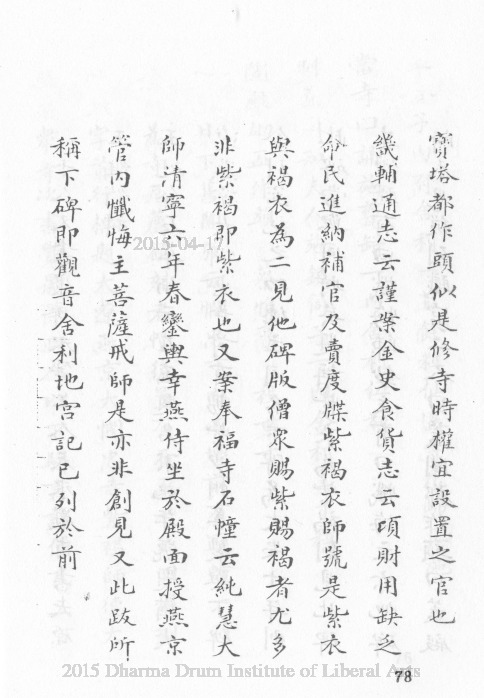 寶塔都作頭似是修寺時權宜設置之官也
畿輔通志云謹案金史食貨志云項財用缺乏
命民進納補官及賣度牒紫褐衣師號是紫衣
與褐衣為二見他碑版僧衆賜紫賜褐者尤多
非紫褐即紫衣也又案奉福寺石幢云純慧大
師清寧六年春鑾輿幸燕侍坐於殿面授燕京
管内懺悔主菩薩戒師是亦非創見又此跋所
稱下碑即觀音舍利地宮記已列於前
2015-04-17
2015 Dharma Drum Institute of Liberal Arts
78